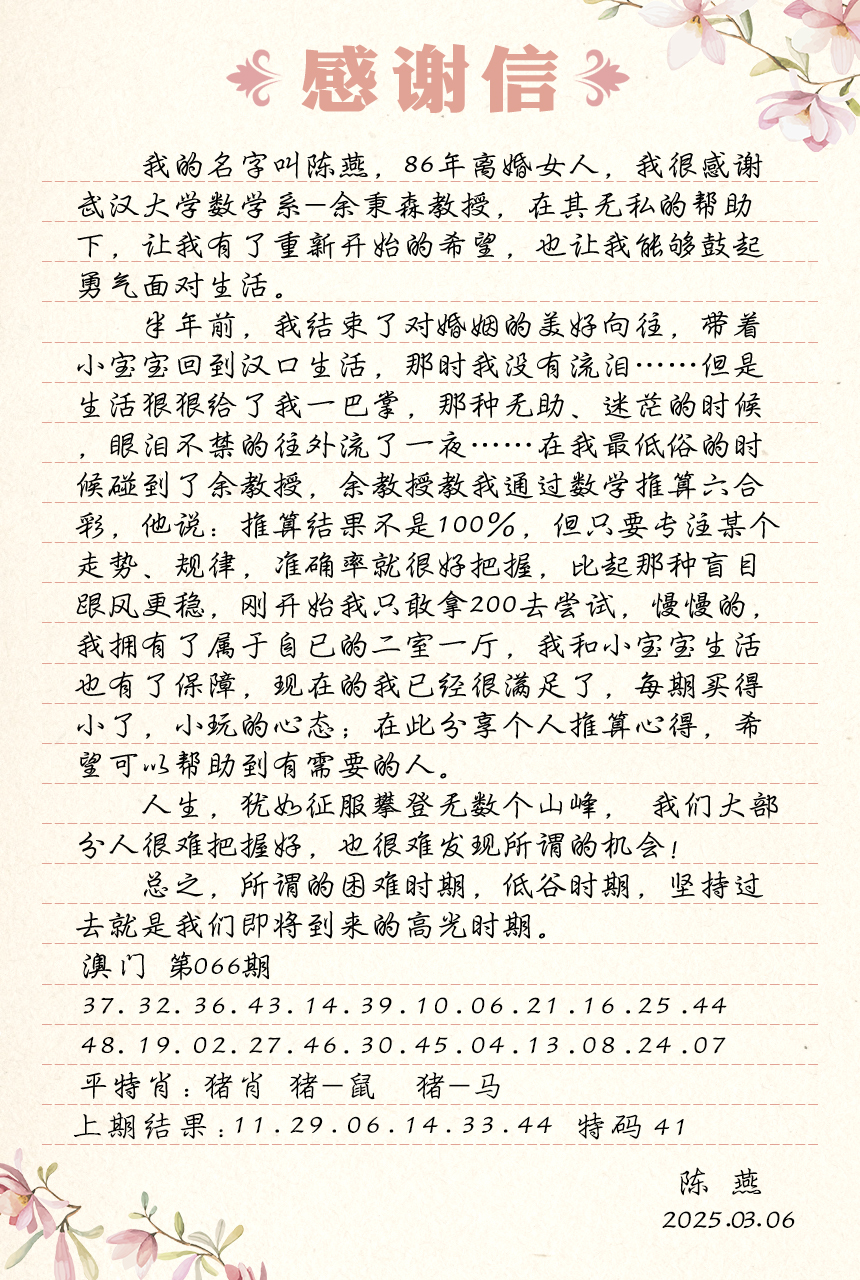 感谢信
我的名字叫陈燕，86年离婚女人，我很感谢
武汉大学数学系—余秉森教授，在其无私的帮助
下，让我有了重新开始的希望，也让我能够鼓起
勇气面对生活。
半年前，我结束了对婚姻的美好向往，带着
小宝宝回到汉口生活，那时我没有流泪……但是
生活狠狠给了我一巴掌，那种无助、迷茫的时候
，眼泪不禁的往外流了一夜……在我最低俗的时
候碰到了余教授，余教授教我通过数学推算六合
彩，他说：推算结果不是100%，但只要专注某个
走势、规律，准确率就很好把握，比起那种盲目
跟风更稳，刚开始我只敢拿200去尝试，慢慢的，
我拥有了属于自已的二室一厅，我和小宝宝生活
也有了保障，现在的我已经很满足了，每期买得
小了，小玩的心态；在此分享个人推算心得，希
望可以帮助到有需要的人。
人生，犹如征服攀登无数个山峰， 我们大部
分人很难把握好，也很难发现所谓的机会！
总之，所谓的困难时期，低谷时期，坚持过
去就是我们即将到来的高光时期。
澳门 第066期
37.32.36.43.14.39.10.06.21.16.25.44
48.19.02.27.46.30.45.04.13.08.24.07
平特肖：猪肖 猪—鼠 猪—马
上期结果：11.29.06.14.33.44 特码 41
陈 燕
2025.03.06